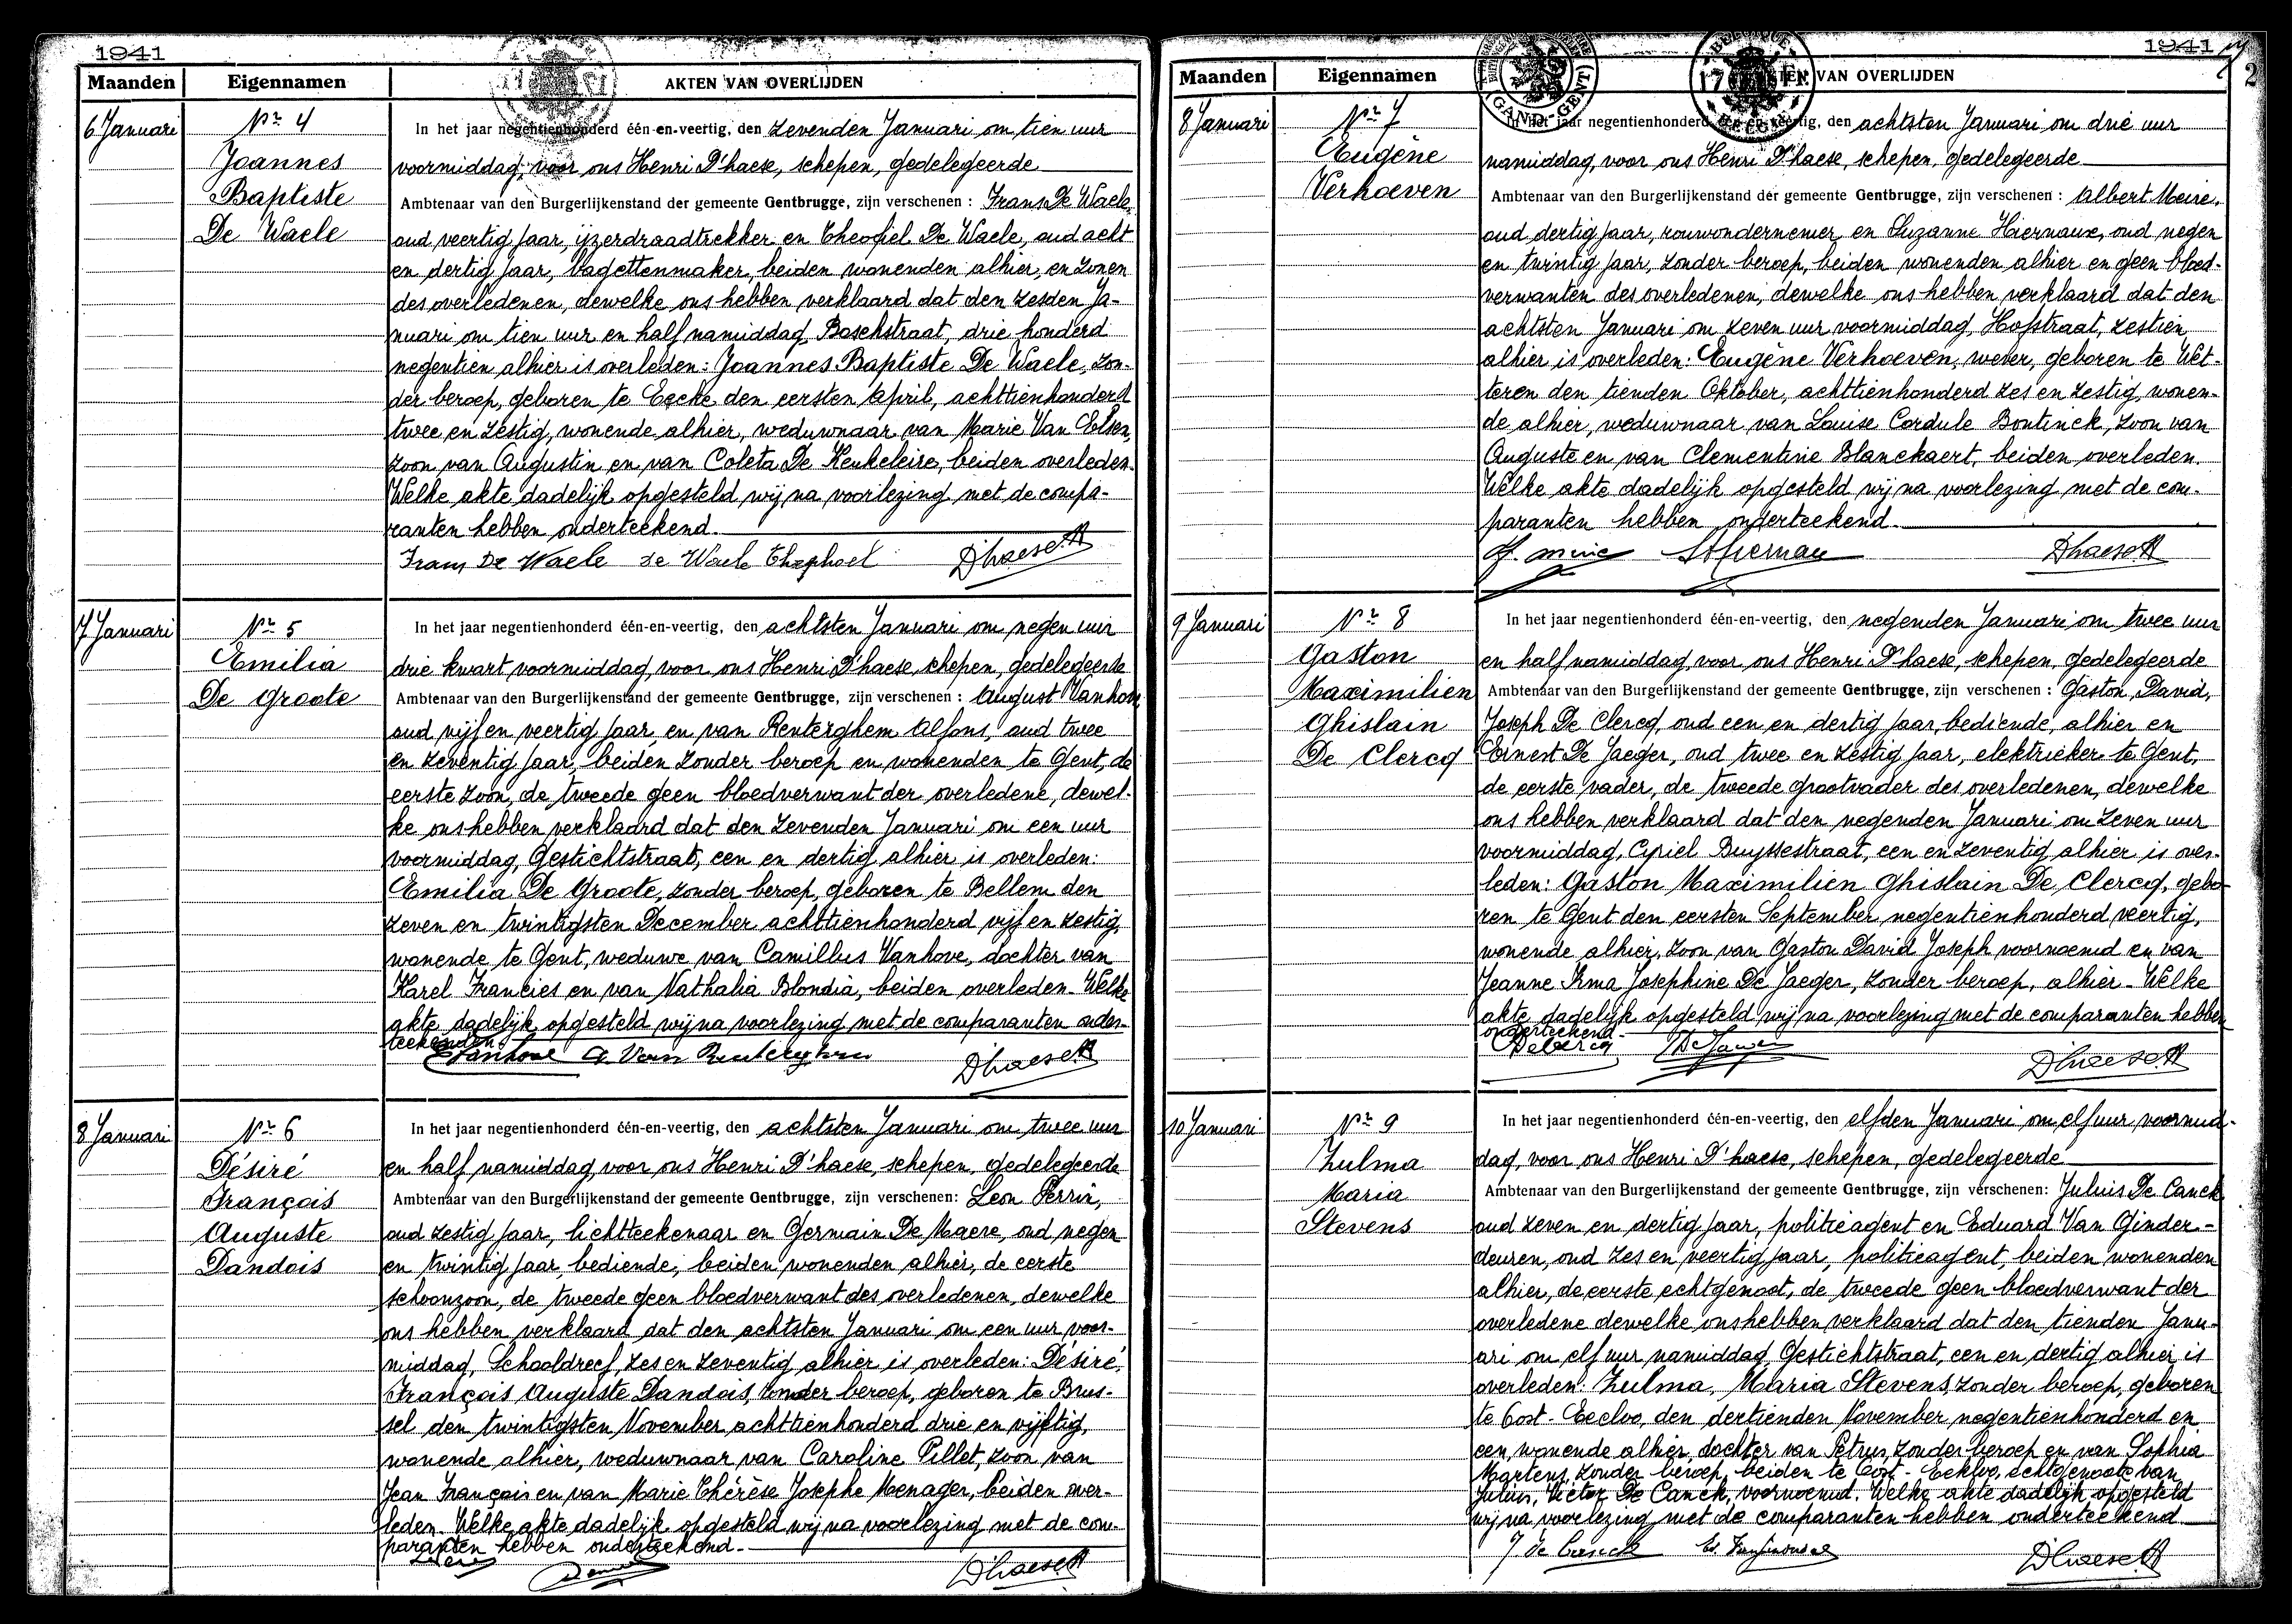 1941
Maanden Eigennamen AKTEN VAN OVERLIJDEN
6 Januari
Nr 4
Joannes
Baptiste
De Waele
In het jaar negentienhonderd één-en-veertig, den zevenden Januari om tien uur
voormiddag, voor ons Henri D'haese, schepen, gedelegeerde
Ambtenaar van den Burgerlijkenstand der gemeente Gentbrugge, zijn verschenen : Frans De Waele,
oud veertig jaar, ijzerdraadtrekker en Theofiel De Waele, oud acht
en dertig jaar, bagettenmaker, beiden wonenden alhier, en zonen
des overledenen, dewelke ons hebben verklaard dat den zesden Ja-
nuari om tien uur en half namiddag, Boschstraat, drie honderd
negentien alhier is overleden: Joannes Baptiste De Waele, zon-
der beroep, geboren te Eecke den eersten April, achttienhonderd
twee en zestig, wonende alhier, weduwnaar van Marie Van Elsen,
zoon van Augustin en van Coleta De Keukeleire, beiden overleden.
Welke akte dadelijk opgesteld wij na voorlezing met de compa-
ranten hebben onderteekend.
Frans De Waele de Waele Theophiel D'haese H
7 Januari
Nr 5
Emilia
De Groote
In het jaar negentienhonderd één-en-veertig, den achtsten Januari om negen uur
drie kwart voormiddag, voor ons Henri D'haese, schepen, gedelegeerde
Ambtenaar van den Burgerlijkenstand der gemeente Gentbrugge, zijn verschenen : August Vanhove,
oud vijf en veertig jaar, en van Renterghem Alfons, oud twee
en zeventig jaar, beiden zonder beroep en wonenden te Gent, de
eerste zoon, de tweede geen bloedverwant der overledene, dewel-
ke ons hebben verklaard dat den zevenden Januari om een uur
voormiddag, Gestichtstraat, een en dertig alhier is overleden:
Emilia De Groote, zonder beroep, geboren te Bellem den
zeven en twintigsten December achttienhonderd vijf en zestig,
wonende te Gent, weduwe van Camillus Vanhove, dochter van
Karel Francies en van Nathalia Blondia, beiden overleden. Welke
akte dadelijk opgesteld wij na voorlezing met de comparanten onder-
teekenden.
Vanhove A. Van Renterghem D'haese H
8 Januari
Nr 6
Désiré
François
Auguste
Dandois
In het jaar negentienhonderd één-en-veertig, den achtsten Januari om twee uur
en half namiddag, voor ons Henri D'haese, schepen, gedelegeerde
Ambtenaar van den Burgerlijkenstand der gemeente Gentbrugge, zijn verschenen: Leon Perrin,
oud zestig jaar, lichtteekenaar en Germain De Maere, oud negen
en twintig jaar, bediende, beiden wonenden alhier, de eerste
schoonzoon, de tweede geen bloedverwant des overledenen, dewelke
ons hebben verklaard dat den achtsten Januari om een uur voor-
middag, Schooldreef, zes en zeventig alhier is overleden: Désiré,
François Auguste Dandois, zonder beroep, geboren te Brus-
sel den twintigsten November achttienhonderd drie en vijftig,
wonende alhier, weduwnaar van Caroline Pillet, zoon van
Jean François en van Marie Thérèse Josephe Menager, beiden over-
leden. Welke akte dadelijk opgesteld wij na voorlezing met de com-
paranten hebben onderteekend.
D'haese H
1941
2
Maanden Eigennamen AKTEN VAN OVERLIJDEN
8 Januari
Nr 7
Eugène
Verhoeven
In het jaar negentienhonderd één-en-veertig, den achtsten Januari om drie uur
namiddag, voor ons Henri D'haese, schepen, gedelegeerde
Ambtenaar van den Burgerlijkenstand der gemeente Gentbrugge, zijn verschenen : Albert Meire,
oud dertig jaar, rouwondernemer en Suzanne Hiernaux, oud negen
en twintig jaar, zonder beroep, beiden wonenden alhier en geen bloed-
verwanten des overledenen, dewelke ons hebben verklaard dat den
achtsten Januari om zeven uur voormiddag, Hofstraat, zestien
alhier is overleden: Eugène Verhoeven, wever, geboren te Wet-
teren den tienden Oktober, achttienhonderd zes en zestig, wonen-
de alhier, weduwnaar van Louise Cordule Bontinck, zoon van
Auguste en van Clementine Blanckaert, beiden overleden.
Welke akte dadelijk opgesteld wij na voorlezing met de com-
paranten hebben onderteekend.
D'haese H
9 Januari
Nr 8
Gaston
Maximilien
Ghislain
De Clercq
In het jaar negentienhonderd één-en-veertig, den negenden Januari om twee uur
en half namiddag, voor ons Henri D'haese, schepen, gedelegeerde
Ambtenaar van den Burgerlijkenstand der gemeente Gentbrugge, zijn verschenen : Gaston, David,
Joseph De Clercq, oud een en dertig jaar, bediende, alhier en
Ernest De Jaeger, oud twee en zestig jaar, elektrieker te Gent,
de eerste vader, de tweede grootvader des overledenen, dewelke
ons hebben verklaard dat den negenden Januari om zeven uur
voormiddag, Cyriel Buyssestraat, een en zeventig alhier is over-
leden: Gaston Maximilien Ghislain De Clercq, gebo-
ren te Gent den eersten September negentienhonderd veertig,
wonende alhier, zoon van Gaston David Joseph voornoemd en van
Jeanne Irma Josephine De Jaeger, zonder beroep, alhier. Welke
akte dadelijk opgesteld wij na voorlezing met de comparanten hebben
onderteekend.
Declercq De Jaeger D'haese H
10 Januari
Nr 9
Zulma
Maria
Stevens
In het jaar negentienhonderd één-en-veertig, den elfden Januari om elf uur voormid-
dag, voor ons Henri D'haese, schepen, gedelegeerde
Ambtenaar van den Burgerlijkenstand der gemeente Gentbrugge, zijn verschenen: Julius De Canck
oud zeven en dertig jaar, politieagent en Eduard Van Ginder-
deuren, oud zes en veertig jaar, politieagent, beiden wonenden
alhier, de eerste echtgenoot, de tweede geen bloedverwant der
overledene dewelke ons hebben verklaard dat den tienden Janu-
ari om elf uur namiddag, Gestichtstraat, een en dertig alhier is
overleden: Zulma, Maria Stevens, zonder beroep, geboren
te Oost-Eecloo, den dertienden November negentienhonderd en
een, wonende alhier, dochter van Petrus, zonder beroep en van Sophia
Martens, zonder beroep, beiden te Oost-Eekloo, echtgenoote van
Julius, Victor De Canck, voornoemd. Welke akte dadelijk opgesteld
wij na voorlezing met de comparanten hebben onderteekend
J de Canck D'haese H